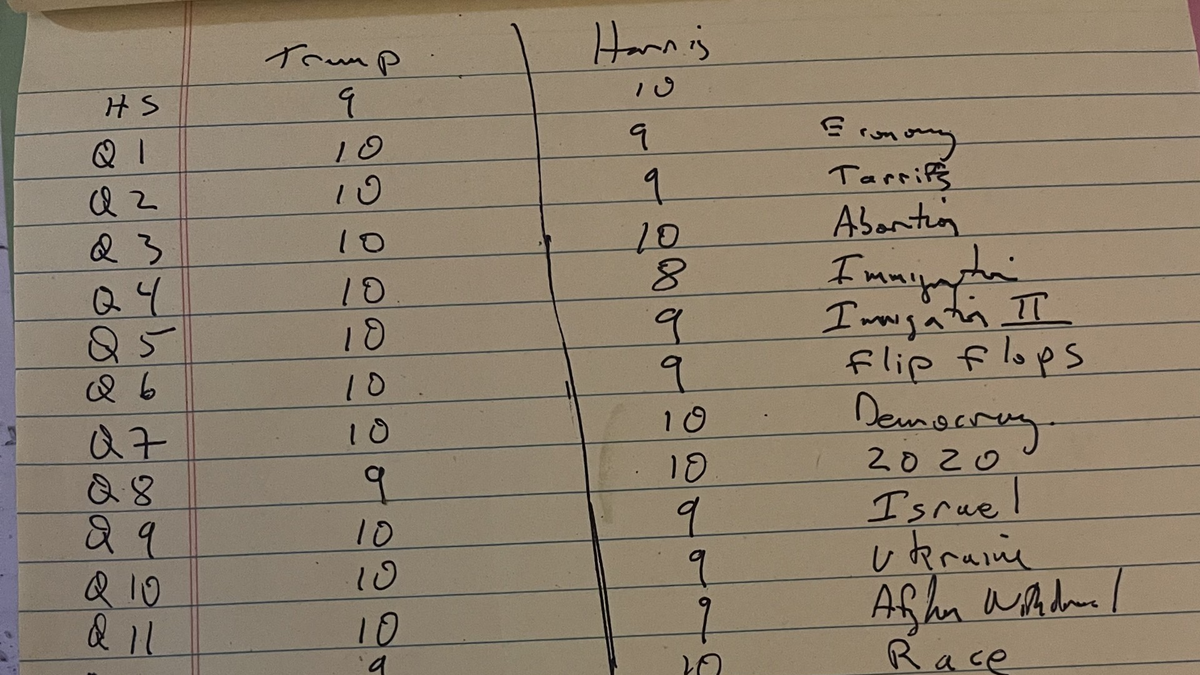 Trump Harris
HS 9 10
Q1 10 9 Economy
Q2 10 9 Tarriffs
Q3 10 10 Abortion
Q4 10 8 Immigration
Q5 10 9 Immigration II
Q6 10 9 Flip Flops
Q7 10 10 Democracy.
Q8 9 10 2020
Q9 10 9 Israel
Q10 10 9 Ukraine
Q11 10 9 Afghan Withdrawal
9 10 Race